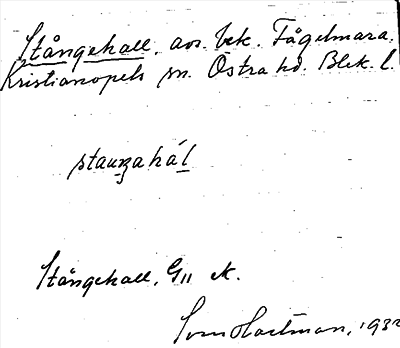 Stångehall. avs. bek. Fågelmara.
Kristianopels sn. Östra hd. Blek. l.
staŋahál
Stångehall, G11 ek.
Sven Hartman, 1932